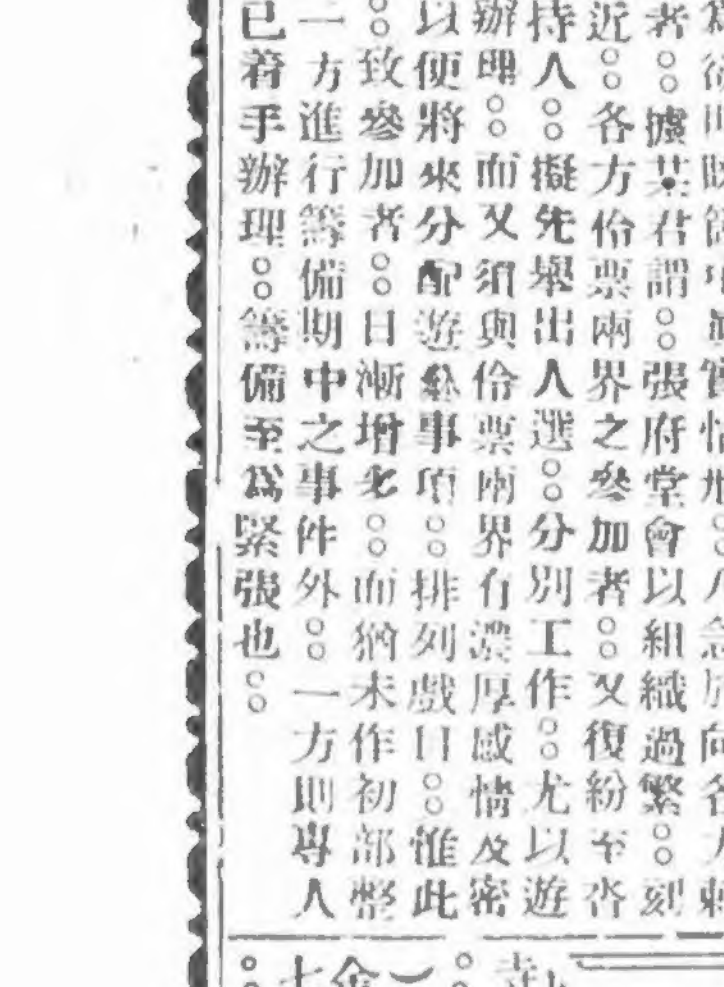 者。。據某君謂。。張府堂會以組織過繁。。刻
近。。各方伶票兩界之參加者。。又復紛至沓
持人。。擬先舉出人選。。分別工作。。尤以遊
辦理。。而又須與伶票兩界有濃厚感情及密
以便將來分配遊藝事項。。排列戲目。。惟此
。。致參加者。。日漸增多。。而猶未作初部整
一方進行籌備期中之事件外。。一方則專人
已着手辦理。。籌備至爲緊張也。。